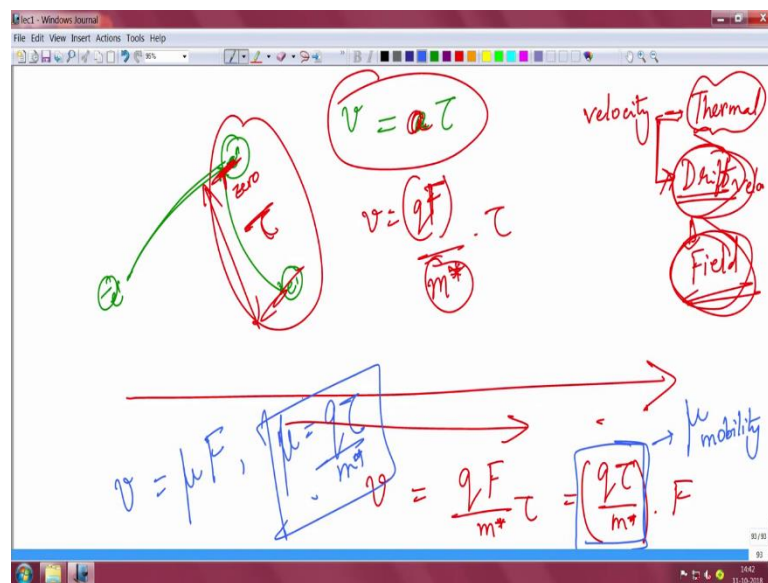 lec1 - Windows Journal
File Edit View Insert Actions Tools Help
96%
B I
v = a τ
velocity → Thermal
Drift vel
Field
zero
τ
v = (qF) / m* . τ
e
e
e
v = μF, μ = qτ / m*
v = qF / m* τ = (qτ / m*) . F
→ μ mobility
93/93
93
14:42
11-10-2018